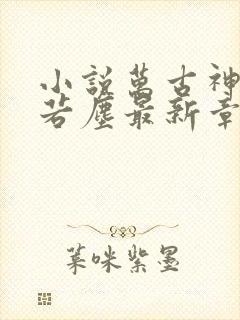 小說萬古神
若塵最新章
葉咪紫墨